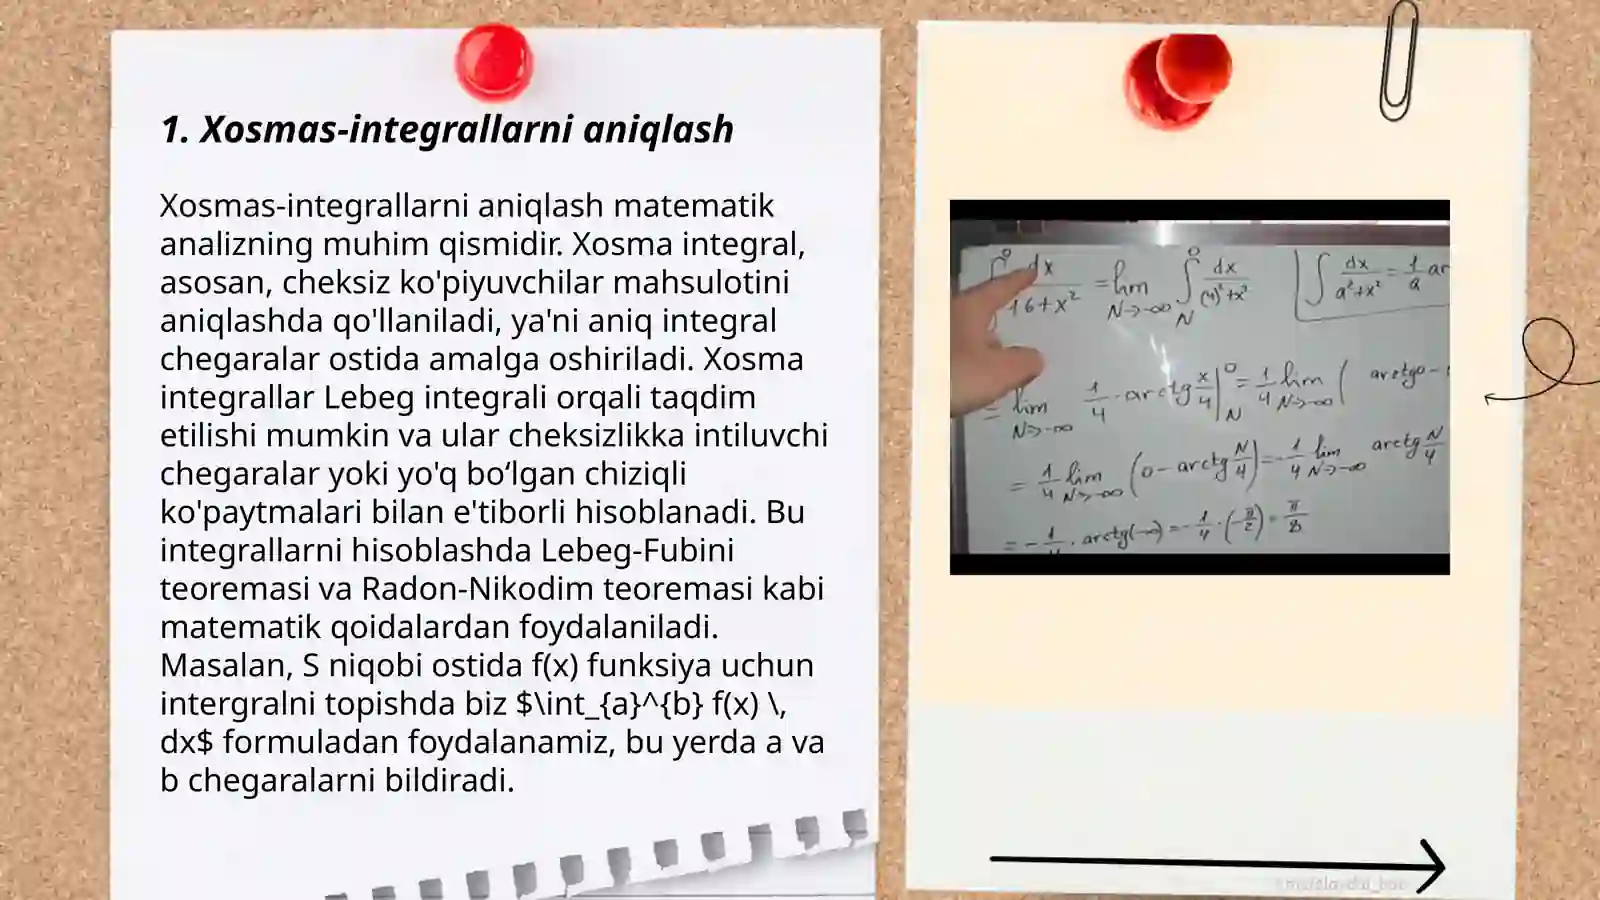 1. Xosmas-integrallarni aniqlash
Xosmas-integrallarni aniqlash matematik
analizning muhim qismidir. Xosma integral,
asosan, cheksiz ko'piyuvchilar mahsulotini
aniqlashda qo'llaniladi, ya'ni aniq integral
chegaralar ostida amalga oshiriladi. Xosma
integrallar Lebeg integrali orqali taqdim
etilishi mumkin va ular cheksizlikka intiluvchi
chegaralar yoki yo'q bo‘lgan chiziqli
ko'paytmalari bilan e'tiborli hisoblanadi. Bu
integrallarni hisoblashda Lebeg-Fubini
teoremasi va Radon-Nikodim teoremasi kabi
matematik qoidalardan foydalaniladi.
Masalan, S niqobi ostida f(x) funksiya uchun
intergralni topishda biz $\int_{a}^{b} f(x) \,
dx$ formuladan foydalanamiz, bu yerda a va
b chegaralarni bildiradi.
∫ dx/16+x² = lim N→-∞ ∫_N^0 dx/(4)²+x²
∫ dx/a²+x² = 1/a ar
= lim N→-∞ 1/4 · arctg x/4 |_N^0 = 1/4 lim N→-∞ ( arctg0 -
= 1/4 lim N→-∞ (0 - arctg N/4) = -1/4 lim N→-∞ arctg N/4
= -1/4 · arctg(-∞) = -1/4 · (-π/2) = π/8